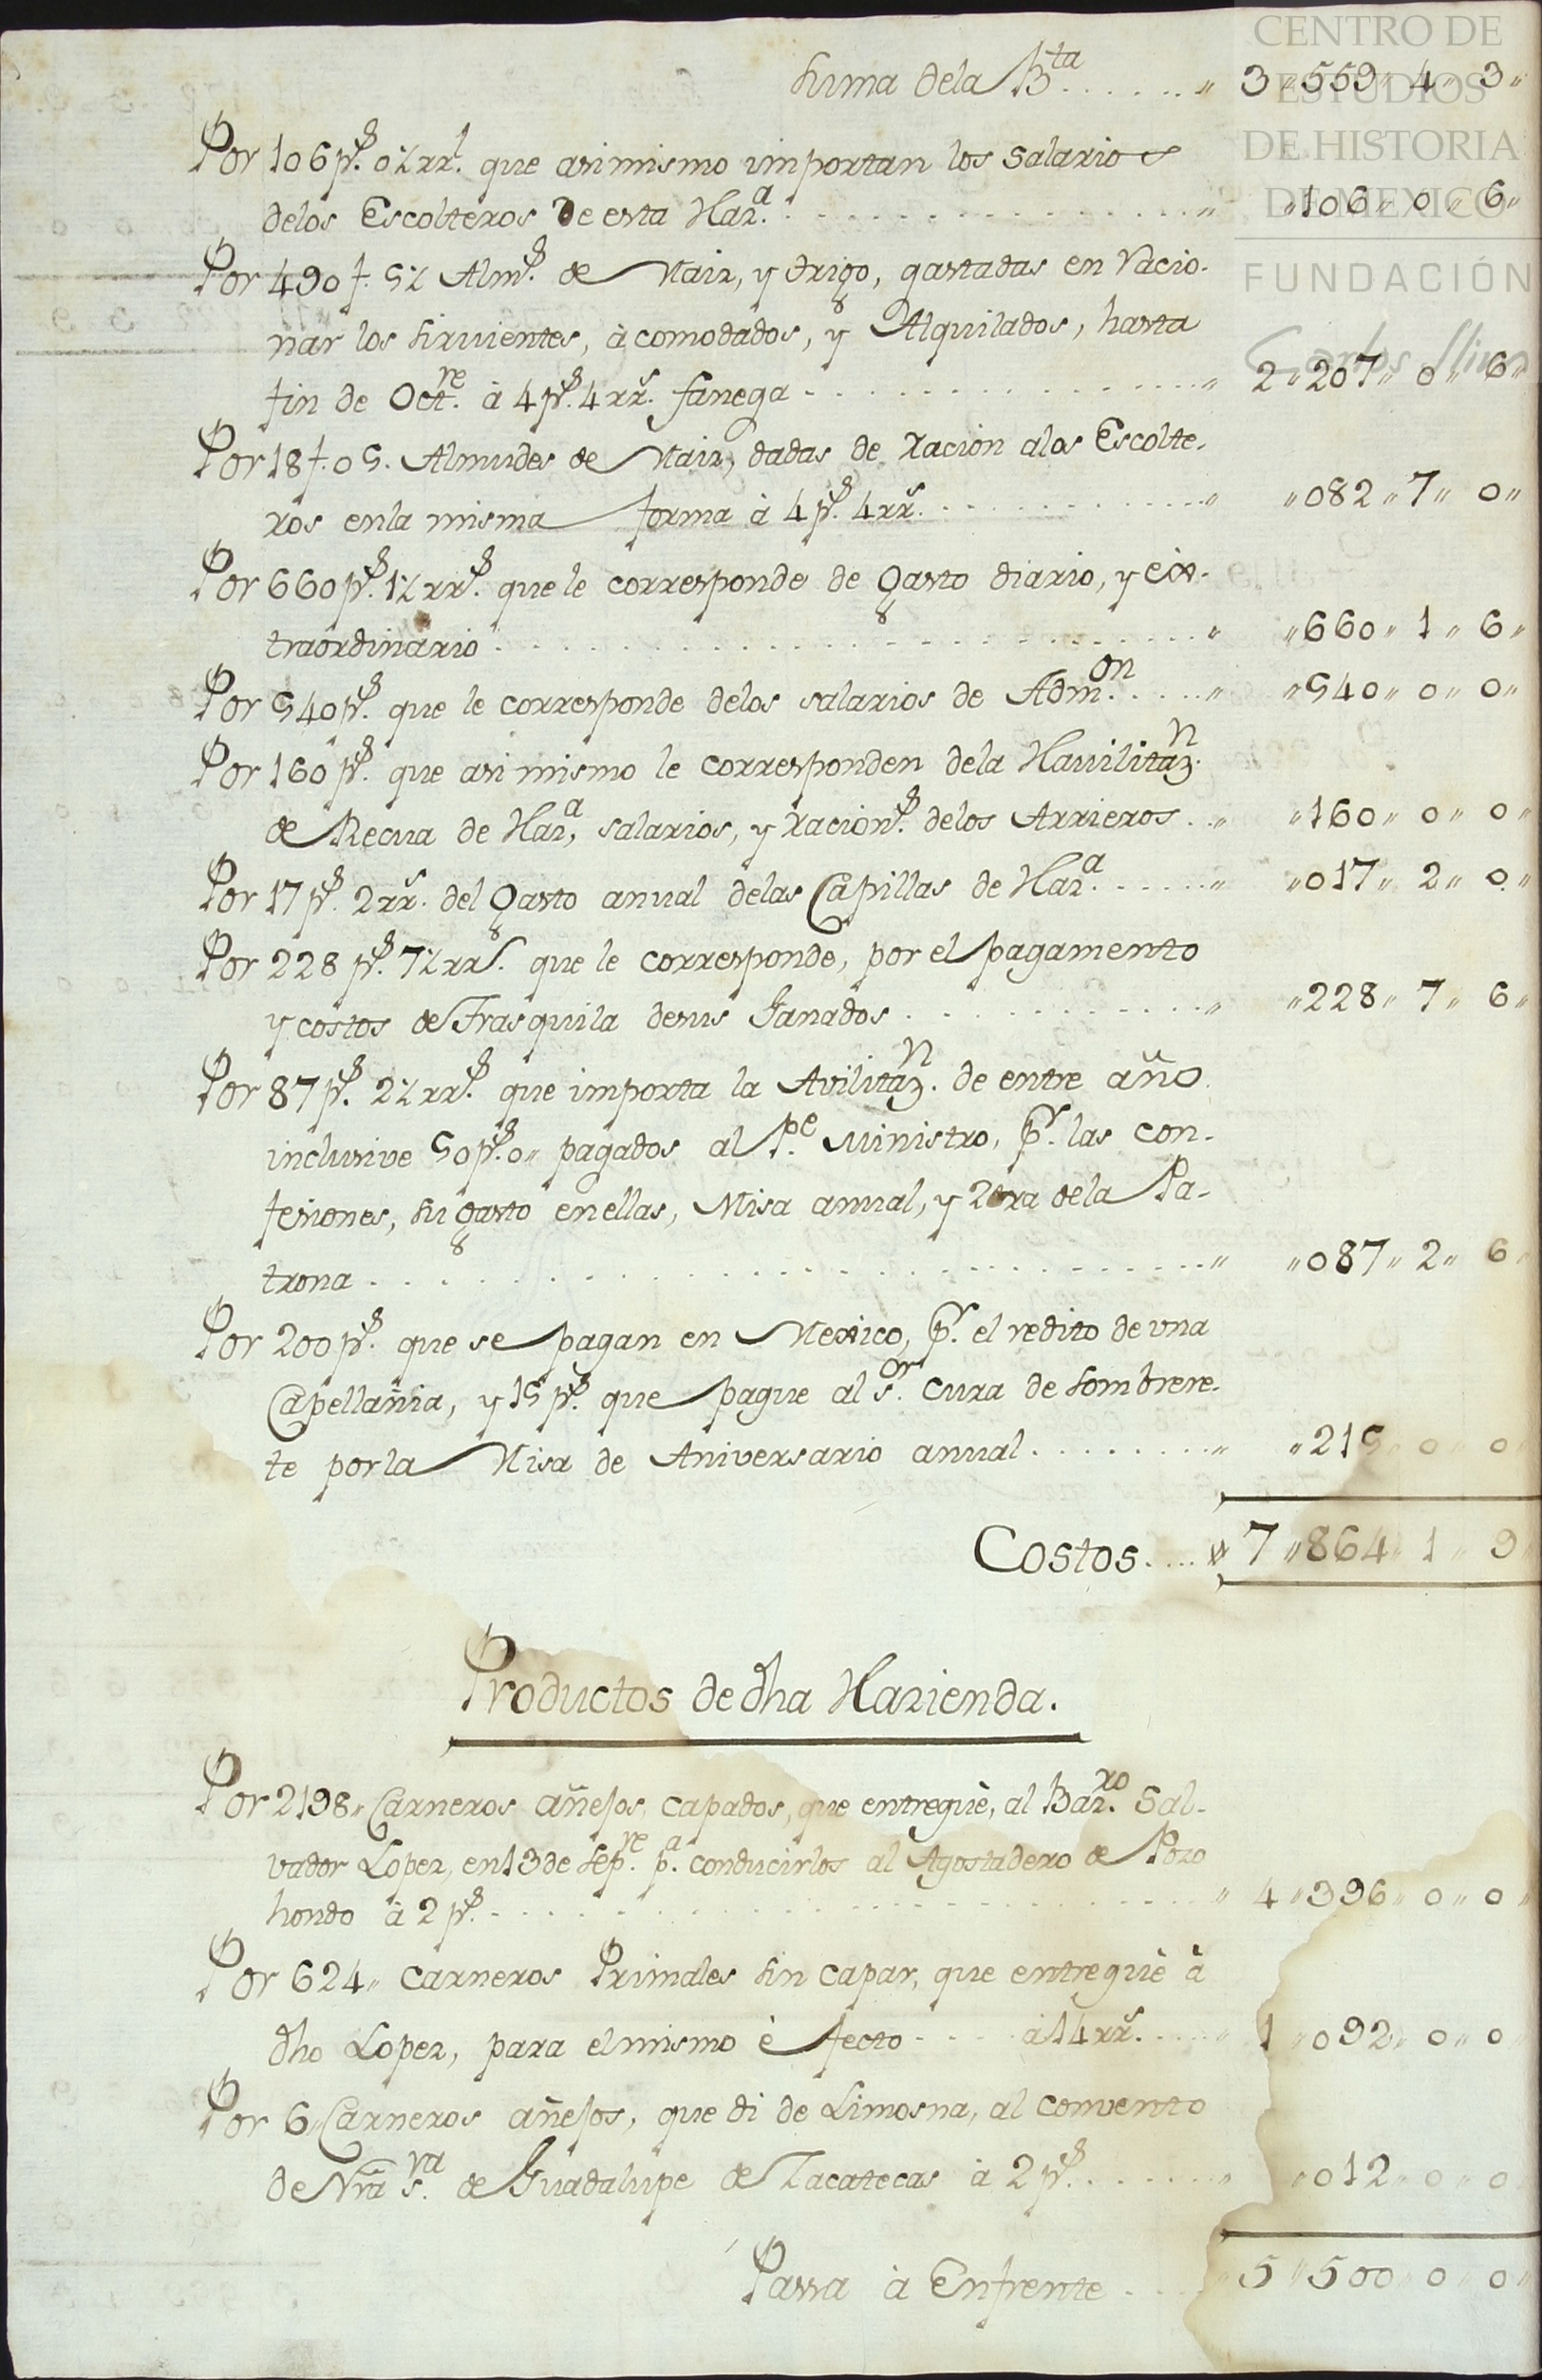 CENTRO DE
ESTUDIOS
DE HISTORIA
DE MEXICO
FUNDACIÓN
Carlos Slim
Suma dela B.ta ...... " 3 " 559 " 4 " 3 "
Por 106 p.s 0½ rr.l que asimismo importan los Salarios
delos Escolteros De esta Haz.a ...... " " 106 " 0 " 6 "
Por 490 f. 5½ Alm.s de Maiz, y trigo, gastadas en racio-
nar los Sirvientes, àcomodados, y Alquilados, hasta
fin de Oct.re à 4 p.s 4 rr.s fanega ...... " 2 " 207 " 0 " 6 "
Por 18 f. 05. Almudes de Maiz, dadas de racion alos Escolte-
ros enla misma forma à 4 p.s 4 rr.s ...... " " 082 " 7 " 0 "
Por 660 p.s 1½ rr.s que le corresponde de Gasto diario, y ex-
traordinario ...... " " 660 " 1 " 6 "
Por 540 p.s que le corresponde delos salarios de Adm.on ..... " " 540 " 0 " 0 "
Por 160 p.s que asimismo le corresponden dela Havilitaz.n
de Recua de Haz.a, salarios, y racion.s delos Arrieros .. " " 160 " 0 " 0 "
Por 17 p.s 2 rr.s del Gasto anual delas Capillas de Haz.a ...... " " 017 " 2 " 0 "
Por 228 p.s 7½ rr.s que le corresponde, por el pagamento
y costos de Trasquila desus Ganados ...... " " 228 " 7 " 6 "
Por 87 p.s 2½ rr.s que importa la Avilitaz.n de entre año
inclusive 50 p.s 0 " pagados al P.e Ministro, p.r las con-
fesiones, su gasto enellas, Misa anual, y Zera dela Pa-
trona ...... " " 087 " 2 " 6 "
Por 200 p.s que se pagan en Mexico, p.r el redito de una
Capellania, y 15 p.s que pague al s.or Cura de Sombrere-
te por la Misa de Aniversario anual ...... " " 215 " 0 " 0 "
Costos .... " 7 " 864 " 1 " 9 "
Productos de dha Hazienda.
Por 2198 " Carneros añejos capados, que entreguè, al Baz.ro Sal-
vador Lopez, en 13 de Sep.re p.a conducirlos al Agostadero de Pozo
hondo à 2 p.s ...... " 4 " 396 " 0 " 0 "
Por 624 " Carneros Primales sin capar, que entreguè à
dho Lopez, para elmismo èfecto .... à 14 rr.s .... " 1 " 092 " 0 " 0 "
Por 6 " Carneros añejos, que di de Limosna, al convento
de Nra s.ra de Guadalupe de Zacatecas à 2 p.s ...... " " 012 " 0 " 0 "
Passa à Enfrente .... " 5 " 500 " 0 " 0 "